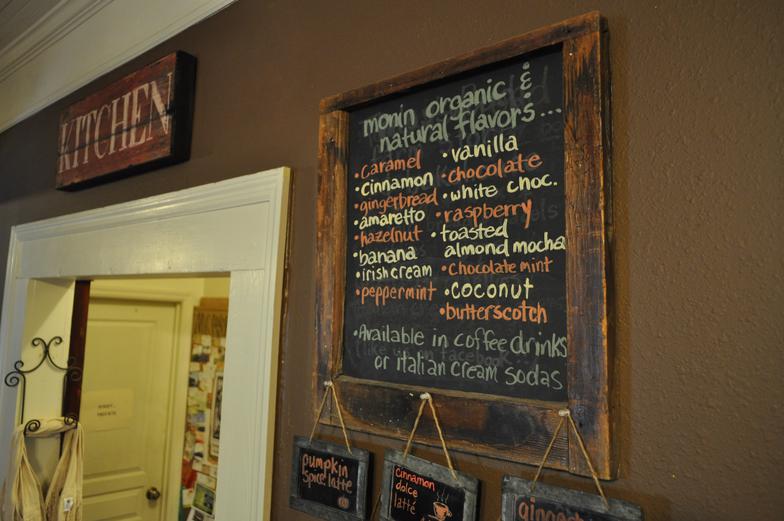 KITCHEN
monin organic &
natural flavors...
• caramel
• cinnamon
• gingerbread
• amaretto
• hazelnut
• banana
• irish cream
• peppermint
• vanilla
• chocolate
• white choc.
• raspberry
• toasted
almond mocha
• chocolate mint
• coconut
• butterscotch
• Available in coffee drinks
or italian cream sodas
pumpkin
spice latte
cinnamon
dolce
latté